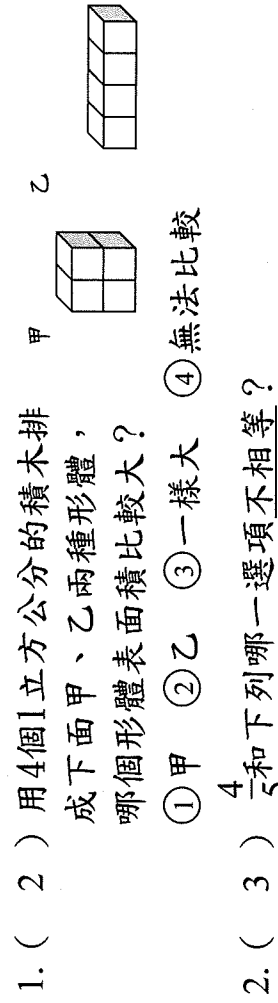 1. ( 2 ) 用4個1立方公分的積木排
成下面甲、乙兩種形體，
哪個形體表面積比較大？
甲 乙
①甲 ②乙 ③一樣大 ④無法比較
2. ( 3 ) 4/5和下列哪一選項不相等？